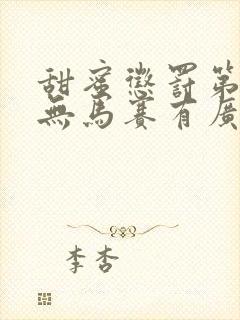 甜蜜懲罰第
無馬賽有廣
李杏